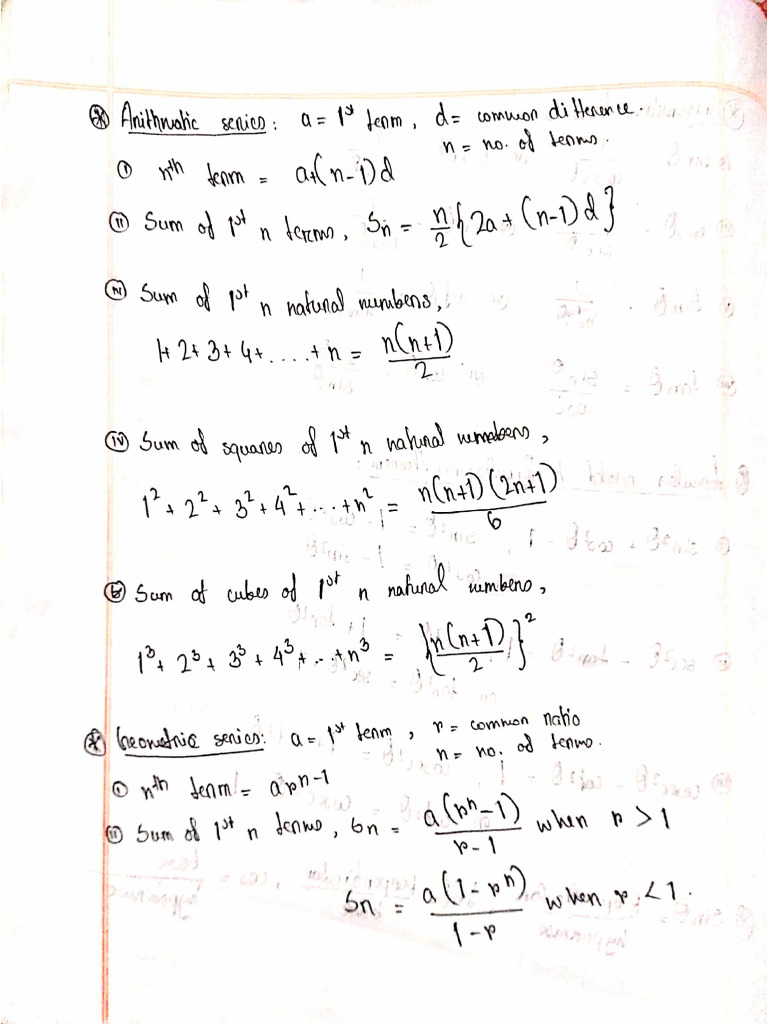 ⊛ Arithmatic series: a = 1st term, d = common difference.
n = no. of terms.
(i) nth term = a+(n-1)d
(ii) Sum of 1st n terms, Sn = n/2 {2a + (n-1)d}
(iv) Sum of 1st n natural numbers,
1+2+3+4+....+n = n(n+1)/2
(iv) Sum of squares of 1st n natural numbers,
1² + 2² + 3² + 4² + ... + n² = n(n+1)(2n+1)/6
Sum of cubes of 1st n natural numbers,
1³ + 2³ + 3³ + 4³ + ... + n³ = {n(n+1)/2}²
⊛ Geometric series: a = 1st term, r = common ratio
n = no. of terms.
(i) nth term = ar^n-1
(ii) Sum of 1st n terms, Sn = a(r^n-1)/r-1 when r > 1
Sn = a(1-r^n)/1-r when r < 1.